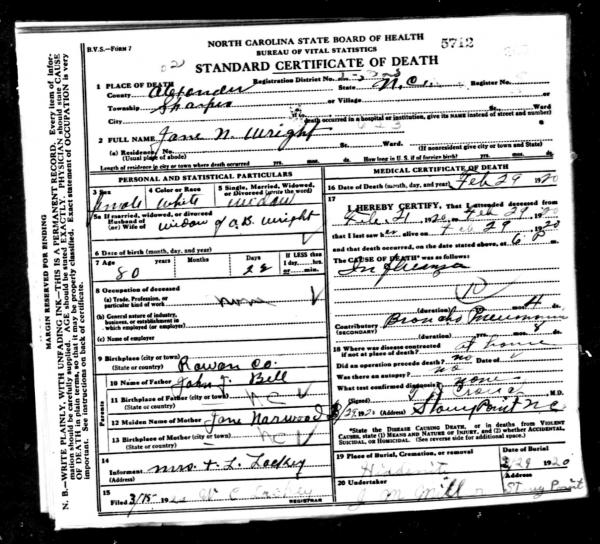 B.V.S.—FORM 7
NORTH CAROLINA STATE BOARD OF HEALTH
BUREAU OF VITAL STATISTICS
STANDARD CERTIFICATE OF DEATH
5712
1 PLACE OF DEATH
Registration District No.
County Alexander State N.C. Register No.
Township Sharpes or Village
City No. St. Ward
(If death occurred in a hospital or institution, give its NAME instead of street and number)
2 FULL NAME Jane N. Wright
(a) Residence, No. St. Ward.
(Usual place of abode) (If nonresident give city or town and State)
Length of residence in city or town where death occurred yrs. mos. ds. How long in U.S. if of foreign birth? yrs. mos. ds.
PERSONAL AND STATISTICAL PARTICULARS
3 Sex 4 Color or Race 5 Single, Married, Widowed, or Divorced (write the word)
Female White Widow
5a If married, widowed, or divorced
Husband of
(or) Wife of widow of A.B. Wright
6 Date of birth (month, day, and year)
7 Age Years Months Days If LESS than 1 day, hrs. or min.
80 28
8 Occupation of deceased
(a) Trade, Profession, or particular kind of work none
(b) General nature of industry, business, or establishment in which employed (or employer)
(c) Name of employer
9 Birthplace (city or town) Rowan Co.
(State or country)
Parents
10 Name of Father John J. Bell
11 Birthplace of Father (city or town) N C
(State or country)
12 Maiden Name of Mother Jane Harwood
13 Birthplace of Mother (city or town) N C
(State or country)
14 Informant Mrs. T. L. Lackey
(Address)
15 Filed 3/15 REGISTRAR
MEDICAL CERTIFICATE OF DEATH
16 Date of Death (month, day, and year) Feb 29 1920
17 I HEREBY CERTIFY, That I attended deceased from
Feb. 21, 1920, to Feb 29 1920
that I last saw her alive on Feb 29 1920
and that death occurred, on the date stated above, at 6 P
The CAUSE OF DEATH* was as follows:
Influenza
(duration) yrs. mos. ds.
Contributory Broncho Pneumonia
(SECONDARY)
(duration) yrs. mos. ds.
18 Where was disease contracted if not at place of death? at home
Did an operation precede death? no Date of
Was there an autopsy? no
What test confirmed diagnosis? none
(Signed) M.D.
(Address) Stony Point N C
*State the DISEASE CAUSING DEATH, or in deaths from VIOLENT CAUSES, state (1) MEANS AND NATURE OF INJURY, and (2) whether ACCIDENTAL, SUICIDAL, or HOMICIDAL. (See reverse side for additional space.)
19 Place of Burial, Cremation, or Removal Date of Burial
Hiddenite 2/29 1920
20 Undertaker Address
Stony Point
MARGIN RESERVED FOR BINDING
N. B.—WRITE PLAINLY, WITH UNFADING INK—THIS IS A PERMANENT RECORD. Every item of information should be carefully supplied. AGE should be stated EXACTLY. PHYSICIAN should state CAUSE OF DEATH in plain terms, so that it may be properly classified. Exact statement of OCCUPATION is very important. See instructions on back of certificate.